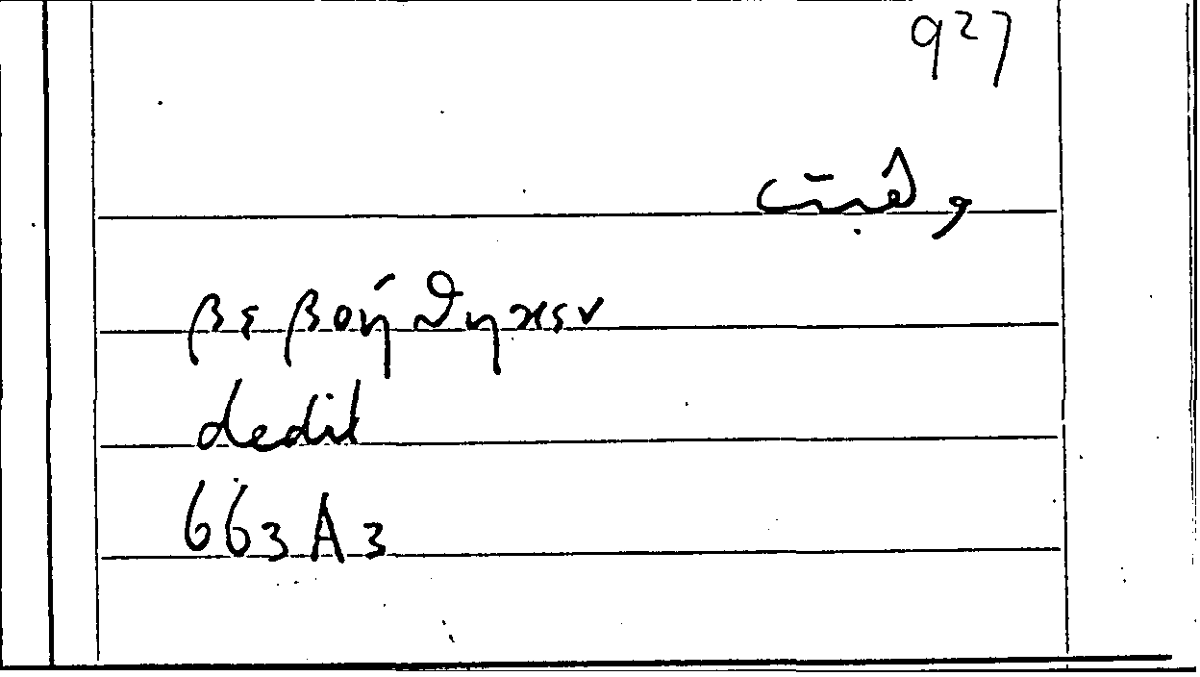 927
وهبت
βεβοήθηκεν
dedit
663A3